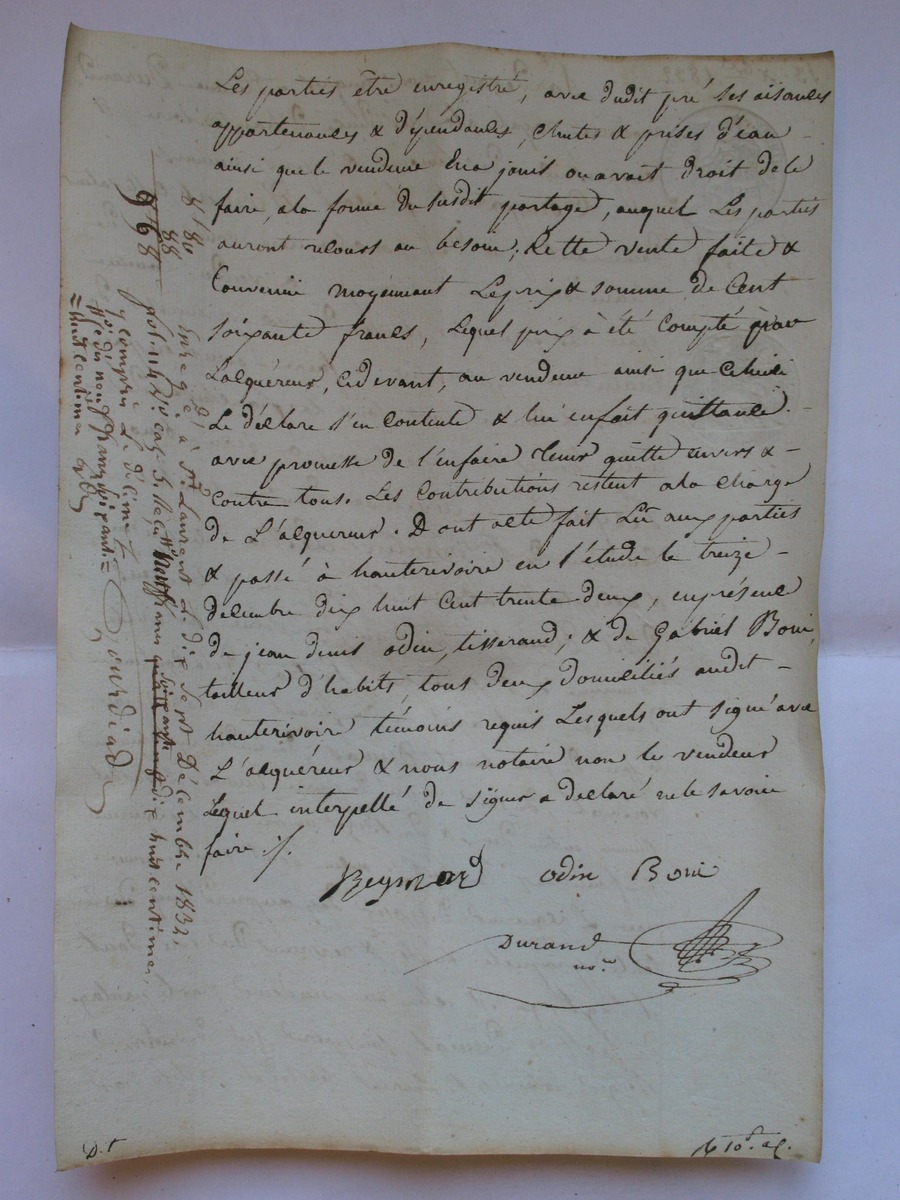 Les parties être enregistré, avec dudit pré ses aisances
appartenances & dépendances, chutes & prises d'eau -
ainsi que le vendeur en a joui ou avait droit de le
faire, a la forme du susdit partage, auquel Les parties
auront recours au besoin; Cette vente faite &
Convenue moyennant Le prix & somme de Cent
soixante francs, Lequel prix à été compté par
L'acquéreur, cidevant, au vendeur ainsi que celuici
Le déclare s'en contente & lui en fait quittance. -
avec promesse de l'en faire tenir quitte envers & -
Contre tous. Les Contributions restent a la charge
de L'acquereur. D ont acte fait Lû aux parties
& passé à hauterivoire en l'étude le treize -
décembre dix huit cent trente deux, en présence
de jean denis odin, tisserand; & de Gabriel Boni,
tailleur d'habits, tous deux domiciliés audit -
hauterivoire témoins requis Lesquels ont signé avec
L'acquéreur & nous notaire non le vendeur
Lequel interpellé de signer a déclaré ne le savoir
faire ./.
Reynard odin Boni
Durand
no.re
D.t
10.
8/80
88
9/68
Enregé à St. Laurent L. dix sept Décembre 1832.
fol. 114 v.o cas. 3. Reçu huit centimes
y compris Le décime
Gourdiad